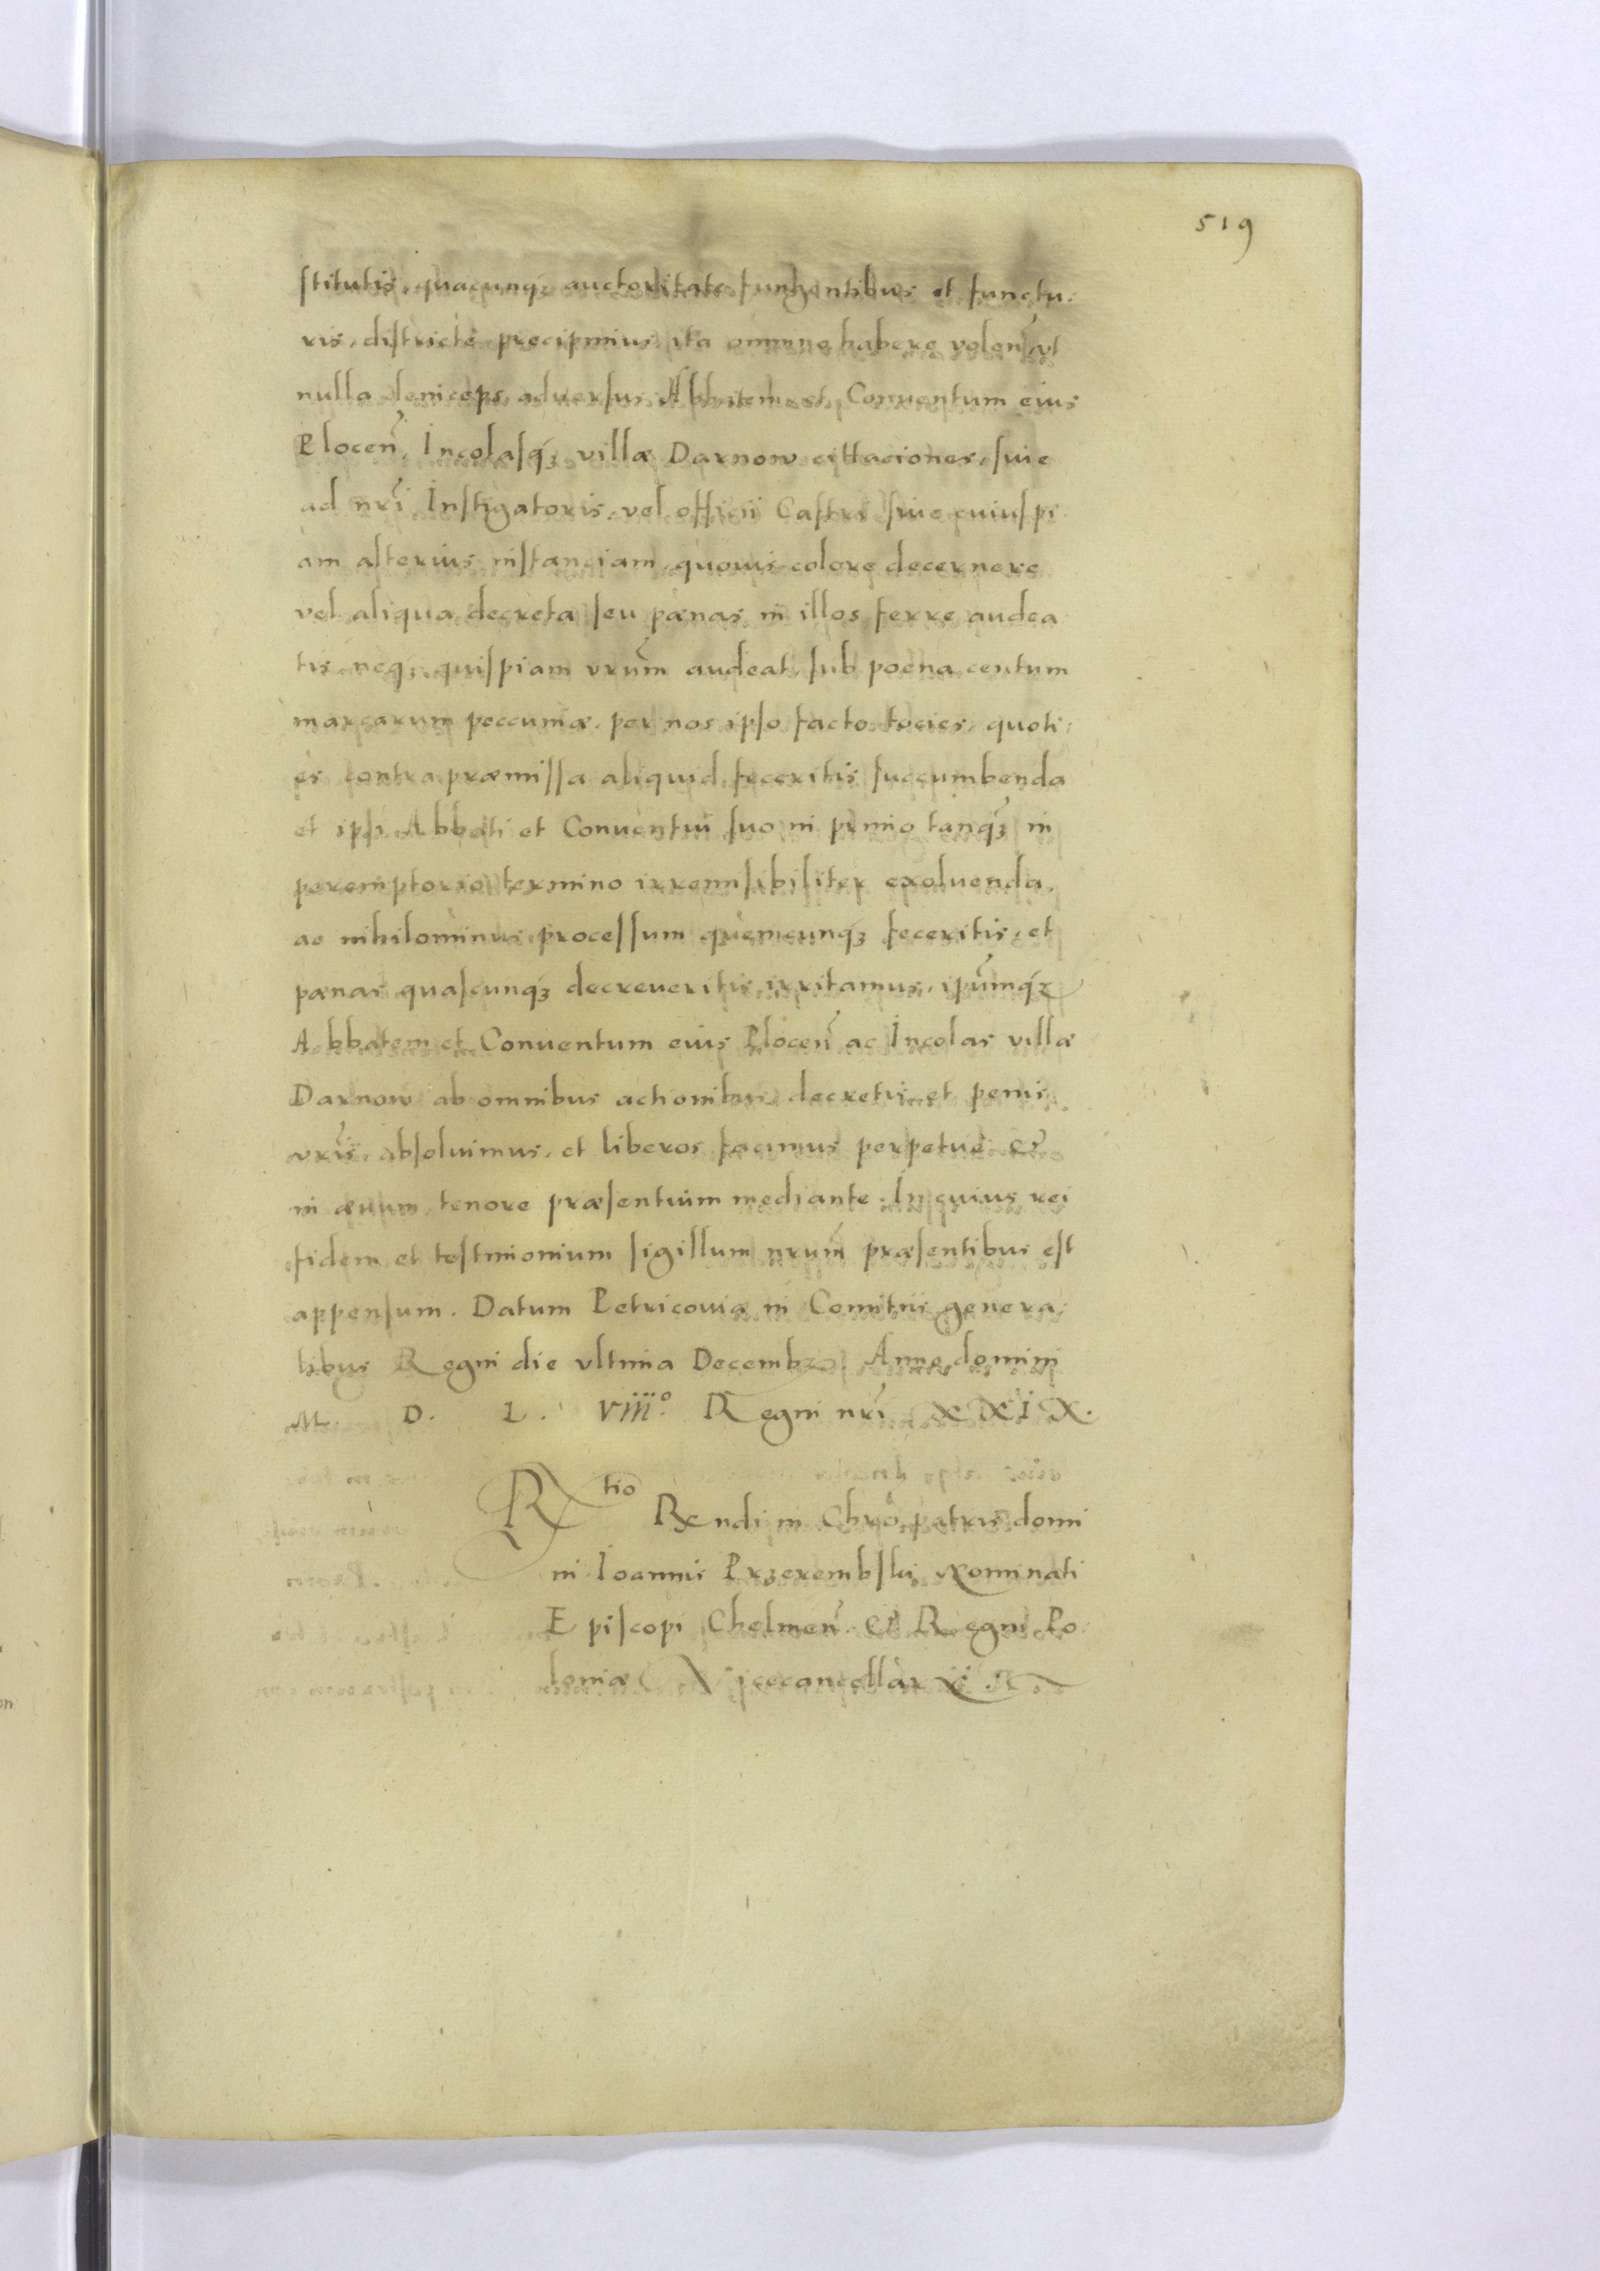 519
stitutis, quacunq; auctoritate fungentibus et functu-
ris, districte precipimus, ita omnino habere volen̄, vt
nulla deniceps adversus Abbatem et Conuentum eius
Plocen̄, Incolasq́ꝫ villæ Darnow cittaciones, siue
ad nr̄i Instigatoris, vel officii Castri siue cuiuspi
am alterius instanciam, quouis colore decernere
vel aliqua decreta seu pænas in illos ferre audea
tis, neq́ꝫ quispiam vrūm audeat, sub poena centum
marcarum peccuniæ, per nos ipso facto tocies, quoti-
es contra præmissa aliquid feceritis succumbenda
et ipsi Abbati et Conuentui suo in primo tanq̄ꝫ in
peremptorio termino irremisibiliter exoluenda,
ac nihilominus processum quemcunq́ꝫ feceritis, et
pænas quascunq́ꝫ decreueritis irritamus, ipūmq́ꝫ
Abbatem et Conuentum eius Plocen̄ ac Incolas villæ
Darnow ab omnibus actionibus decretis et penis
vr̄is, absoluimus, et liberos facimus perpetue et
in æuum, tenore præsentium mediante. In cuius rei
fidem et testimonium sigillum nrūm præsentibus est
appensum. Datum Petricouiæ in Comitiis genera-
libus Regni die vltima Decembꝫ. Anno domini
M. D. L. viii.° Regni nr̄i XXIX.
Rtio Rendi in Chrō patris domi
ni Ioannis Przerembski Nominati
Episcopi Chelmen̄ et Regni Po-
loniæ Vicecancellarii